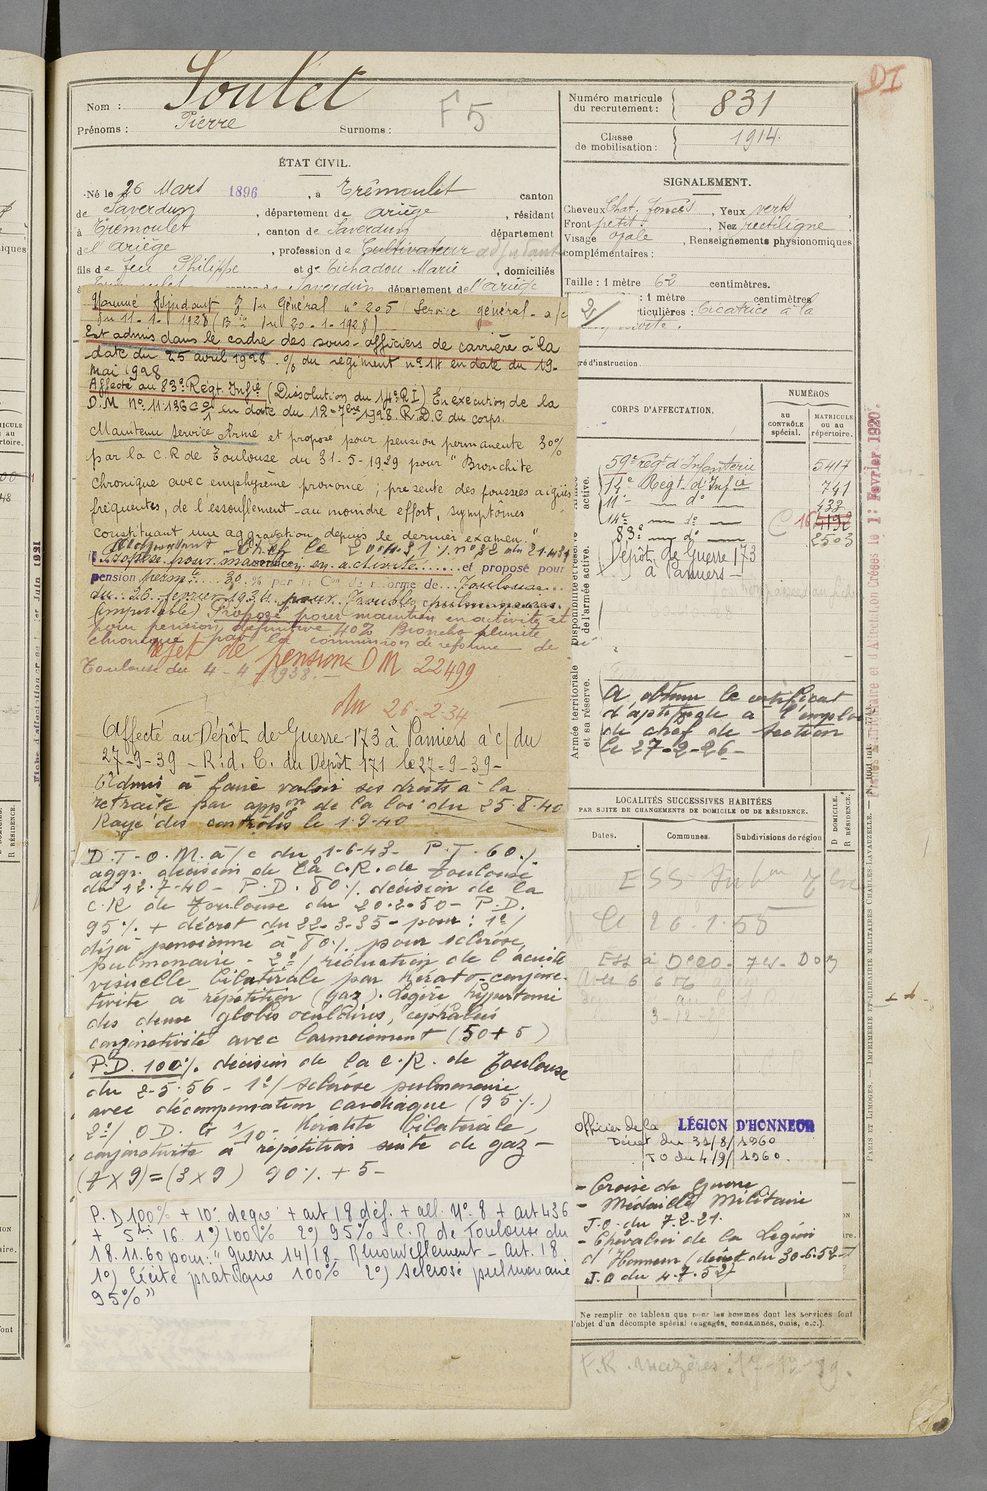 DI
Nom : Soulet
Prénoms : Pierre Surnoms : F 5
Numéro matricule du recrutement : 831
Classe de mobilisation : 1914
ÉTAT CIVIL.
Né le 26 Mars 1896, à Trémoulet canton
de Saverdun, département de Ariège, résidant
à Trémoulet, canton de Saverdun département
de l'Ariège, profession de Cultivateur adjudant
fils de feu Philippe et de Cichadou Marie, domiciliés
canton de Saverdun département de l'Ariège
SIGNALEMENT.
Cheveux Chat. foncés, Yeux verts,
Front petit, Nez rectiligne
Visage ovale, Renseignements physionomiques
complémentaires :
Taille : 1 mètre 62 centimètres.
: 1 mètre centimètres
2/ ticulières : Cicatrice à la
gré d'instruction.
Nommé Adjudant
général n° 205 Service général - a/c
du 11-1-1928 (B in du 20-1-1928)
Est admis dans le cadre des sous-officiers de carrière à la
date du 25 avril 1928. O/ du régiment n° 14 en date du 19-
mai 1928
Affecté au 83e Régt Infie (Dissolution du 14e RI) En exécution de la
D.M. N° 11136 en date du 12-7bre 1928. R.D.C. du corps.
Maintenu Service Armé et proposé pour pension permanente 30%
par la C.R de Toulouse du 31-5-1929 pour "Bronchite
chronique avec emphysème prononcé ; présente des poussées aigües
fréquentes, de l'essouflement au moindre effort, symptômes
constituant une aggravation depuis le dernier examen."
pour maintien en activité et proposé pour
pension perm. 30 % par la Con de réforme de Toulouse
du 26 février 1934 pour Troubles pulmonaires
(imputable) Proposé pour maintien en activité et
pour pension définitive 40% Broncho
chronique par la commission de réforme de
Toulouse du 4-4-1938.-
rejet de pension DM 22499
du 26-2-34
Affecté au Dépôt de Guerre 173 à Pamiers à c/ du
27-9-39 - R.d.C. du Dépôt 171 le 27-9-39-
Admis à faire valoir ses droits à la
retraite par appon de la loi du 25-8-40
Rayé des contrôles le 1-9-40
D.T.O.M. à/c du 1-6-43- P.T. 60 %
aggr. décision de la C.R. de Toulouse
du 12-7-40- P.D. 80 % décision de la
C.R de Toulouse du 20-2-50- P.D.
95 % + décret du 22-3-35- pour : 1°/
déjà pensionné à 80 % pour sclérose
pulmonaire - 2°/ réduction de l'acuité
visuelle bilatérale par kérato-conjonc-
tivité à répétition (gaz). légère hypertonie
des deux globes oculaires, céphalées
conjonctivité avec larmoiement (50+5)
P.D. 100% décision de la C.R. de Toulouse
du 2-5-56 - 1°/ sclérose pulmonaire
avec décompensation cardiaque (95%)
2°/ O D. G 1/10 - Kératite bilatérale,
conjonctivité à répétition suite de gaz -
(7 X 9) = (3 X 9) 90 % + 5 -
P.D 100% + 10° degré + art 18 déf. + all. N° 8 + art 436
+ 5me 16. 1°) 100% 2°) 95% C.R de Toulouse du
18.11.60 pour "Guerre 14/18 - Renouvellement - art. 18
1°) Cécité pratique 100% 2°) Sclérose pulmonaire
95%"
CORPS D'AFFECTATION.
NUMÉROS
AU CONTRÔLE spécial.
MATRICULE ou au répertoire.
Disponibilité et réserve de l'armée active.
59e Régt d'Infanterie 5417
14e Régt d'Infie 741
11e d° 433
14e d° C 16 4192
83e d° 2503
Dépôt de Guerre 173
à Pamiers -
Armée territoriale et sa réserve.
A obtenu le certificat
d'aptitude à l'emploi
de chef de section
le 27-2-26-
LOCALITÉS SUCCESSIVES HABITÉES
PAR SUITE DE CHANGEMENTS DE DOMICILE OU DE RÉSIDENCE.
Dates. Communes. Subdivisions de région D. DOMICILE. R RÉSIDENCE.
le 26.1.58
3-12-
Officier de la LÉGION D'HONNEUR
Décret du 31/8/1960
JO du 4/9/1960.
- Croix de Guerre
- Médaille Militaire
J.O. du 7.2.21.
- Chevalier de la Légion
d'Honneur (décret du 30-6-52-
J.O du 4.7.52)
Ne remplir ce tableau que pour les hommes dont les services font
l'objet d'un décompte spécial (engagés, condamnés, omis, etc.).
F.R. Mazères : 17-12-
PARIS ET LIMOGES. — IMPRIMERIE ET LIBRAIRIE MILITAIRES CHARLES-LAVAUZELLE.